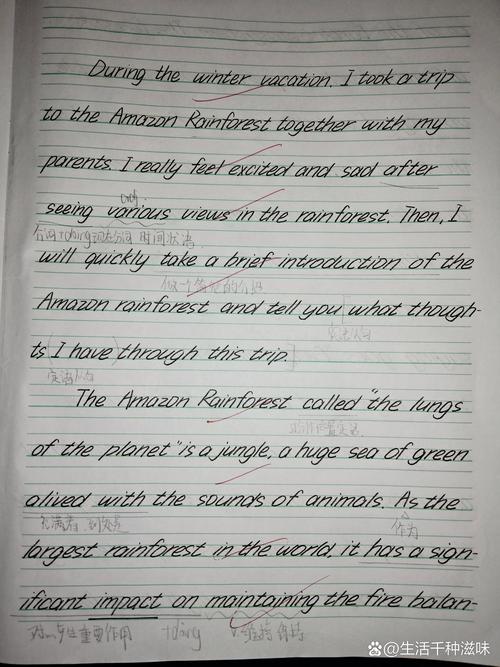 During the winter vacation, I took a trip
to the Amazon Rainforest together with my
parents. I really feel excited and sad after
adj.
seeing various views in the rainforest. Then, I
时间状语
will quickly take a brief introduction of the
做一个简短的介绍
Amazon rainforest and tell you what though-
宾语从句
ts I have through this trip.
定语从句
The Amazon Rainforest called "the lungs
of the planet" is a jungle, a huge sea of green
alived with the sounds of animals. As the
充满着
作为
largest rainforest in the world, it has a sign-
ificant impact on maintaining the fire balan-
对…产生重要作用 +doing v.维持 保持
@生活千种滋味